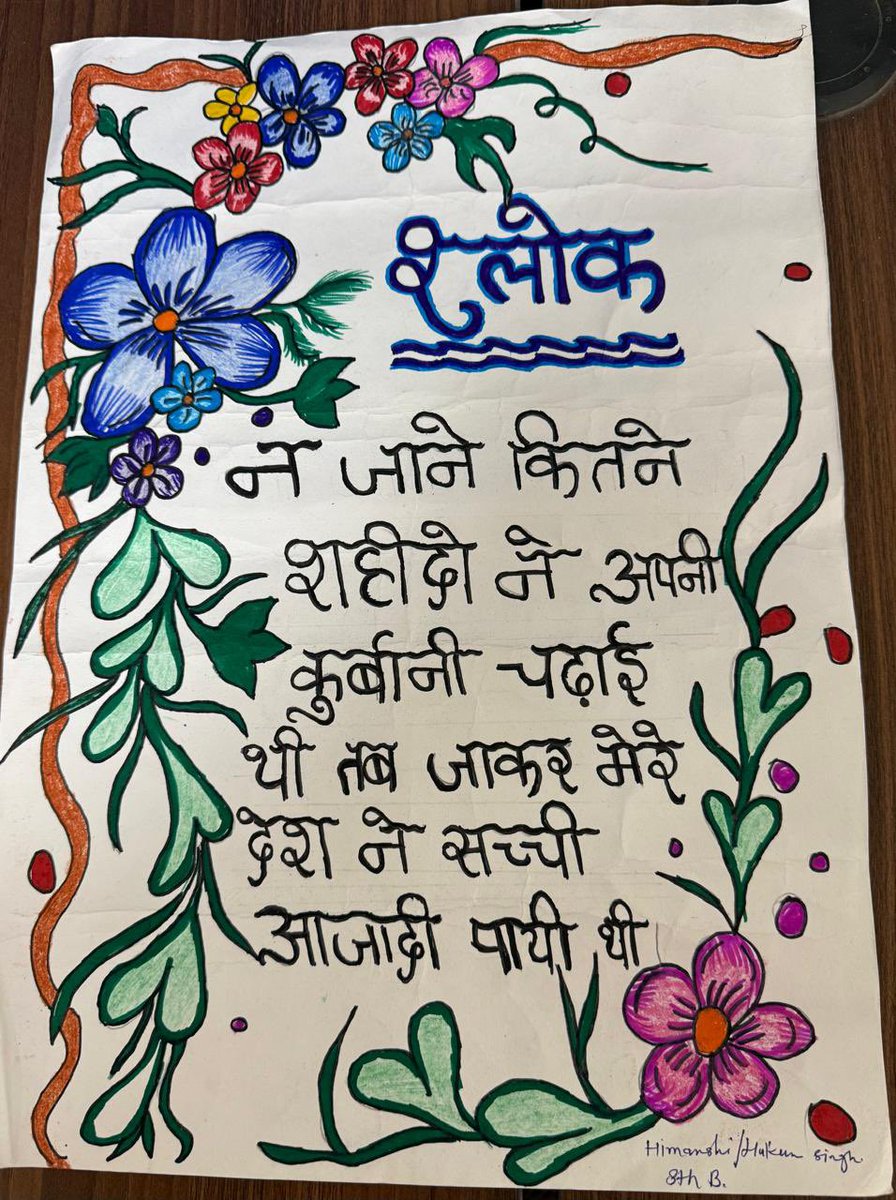 श्लोक
न जाने कितने
शहीदो ने अपनी
कुर्बानी चढ़ाई
थी तब जाकर मेरे
देश ने सच्ची
आजादी पायी थी
Himanshi/Hukum Singh
8th B.